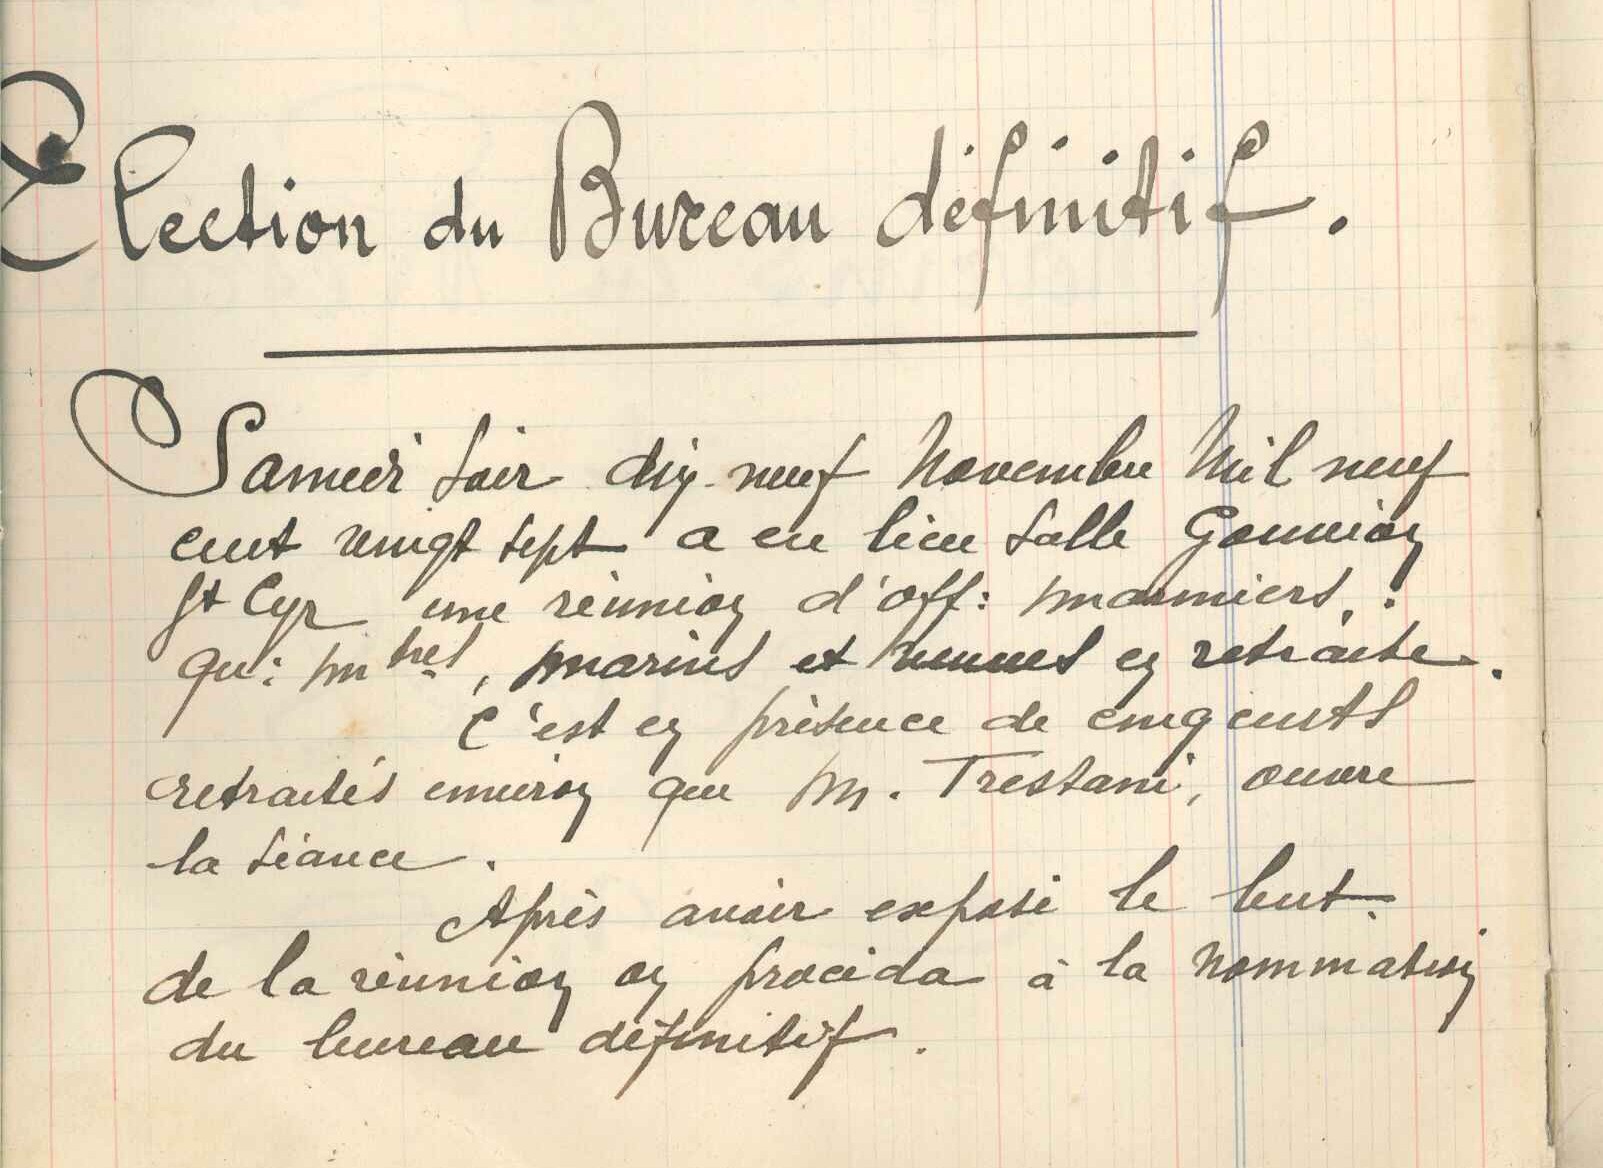 Election du Bureau définitif.
Samedi soir dix-neuf Novembre Mil neuf
cent vingt sept a eu lieu salle Gouvion
St Cyr une réunion d'off: mariniers,
qu: mtres, marins et veuves en retraite.
C'est en présence de cinq cents
retraités environ que M. Trestani, ouvre
la séance.
Après avoir exposé le but
de la réunion on procéda à la nommation
du bureau définitif.